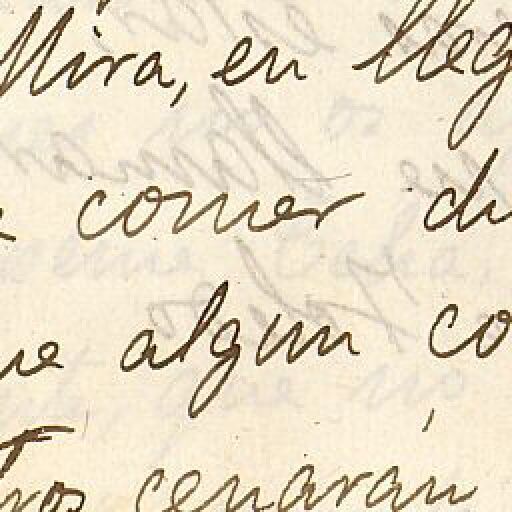 Mira, en lleg
comer di
ue algun co
tros cenarán